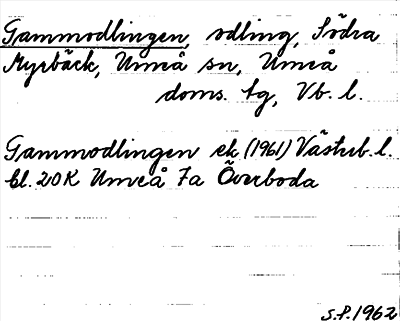 Gammodlingen, odling, Södra
Myrbäck, Umeå sn, Umeå
doms. tg, Vb. l.
Gammodlingen ek (1961) Västerb. l.
bl. 20K Umeå 7a Överboda
S.P. 1962